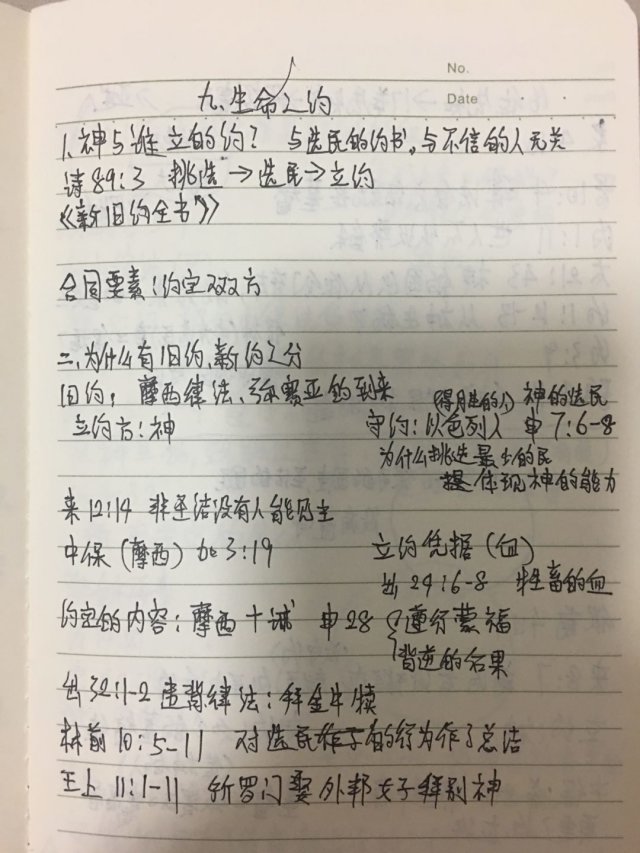 No.
Date
九、生命之约
1、神与谁立的约? 与选民的约书,与不信的人无关
诗89:3 挑选→选民→立约
《新旧约全书》
合同要素:约定双方
二、为什么有旧约,新约之分
旧约:摩西律法、弥赛亚的到来
(得月生的人) 神的选民
立约方:神 守约:以色列人 申7:6-8
为什么挑选最少的民
是体现神的能力
来12:14 非圣洁没有人能见主
中保(摩西)加3:19 立约凭据(血)
出24:6-8 牲畜的血
约定的内容:摩西十诫 申28 {遵行蒙福
背逆的后果
出32:1-2 违背律法:拜金牛犊
林前10:5-11 对选民的行为作了总结
王上11:1-11 所罗门娶外邦女子拜别神